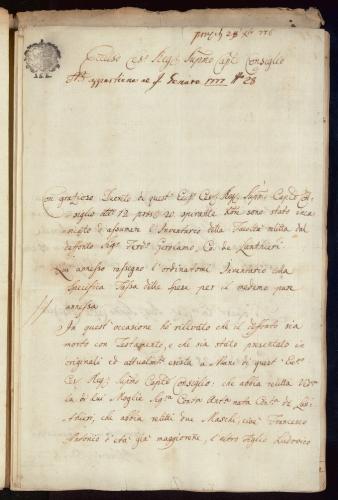 28 Xbr 776
Eccelso Ces: Reg: Supmo Capl: Consiglio
appartiene al Genaro 1777 N 28
Con grazioso Decreto di quest' Ecc: Ces: Reg: Supmo Capl: Con-
siglio 12 20 spirante sono stato inca-
ricato d'assumere l'Inventario della Facoltà relitta dal
deffonto Sig: Ferd: Gerolamo Co: de Lanthieri
Qui annesso rassegno l'ordinatomi Inventario colla
specifica Tassa delle spese per il medemo pure
annessa
In quest' occasione hò rilevato che il deffonto sia
morto con Testamento, e che sia stato presentato in
originali ed attualmte esista a Mani di quest' Ecc:
Ces: Reg: Supmo Capl: Consiglio: che abbia relitta
la di lui Moglie Sig:ra nata Cont: de Lan-
thieri, che abbia relitti due Maschi, cioè Francesco
Antonio d'età già maggiorene, e altro figlio Ludovico